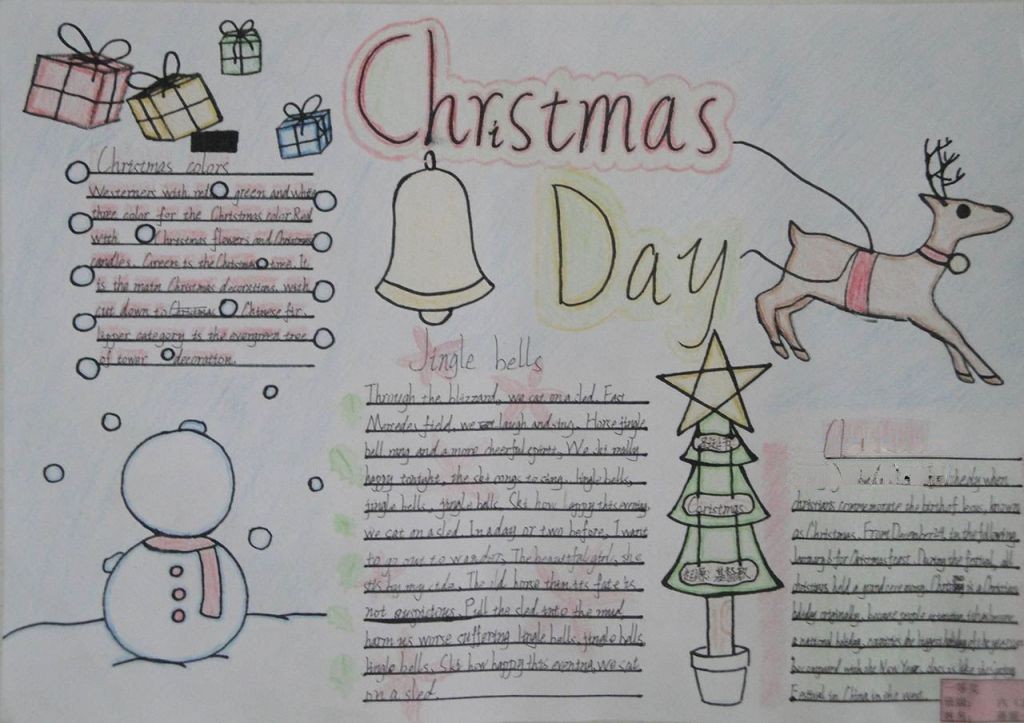 Christmas
Day
Christmas colors
Westerners with red green and white
three color for the Christmas color Red
with Christmas flowers and Christmas
candles. Green is the Christmas tree. It
is the main Christmas decorations, with
cut down to Christmas Chinese fir,
tipper category is the evergreen tree
of tower decoration.
Jingle bells
Through the blizzard, we cat on a sled. Fast
Mercedes field, we laugh and sing. Horse jingle
bell rang and a more cheerful spirit, We ski really
happy tonight, the ski songs to sing. Jingle bells,
jingle bells, jingle bells. Ski how happy this evening
we cat on a sled. In a day or two before, I want
to go out to wander. The beautiful girl, she
sits by my side. The old horse thin its fate is
not auspicious. Pull the sled into the mud,
harm us worse suffering. Jingle bells, jingle bells
Jingle bells. Ski how happy this evening, we cat
on a sled.
Christmas
the day when
christians commemorate the birth of known
as Christmas. From December 24 to the following
January 6 for Christmas feast. During the festival, all
christians hold a grand ceremony. is a Christian
holiday originally, because people
a national holiday, the biggest holiday of the year
compared with the New Year, like the spring
Festival in China in the west.